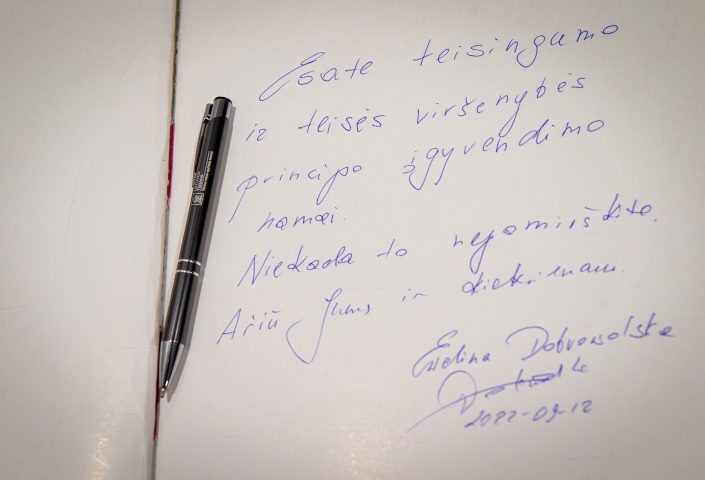 Esate teisingumo
ir teisės viršenybės
principo įgyvendimo
namai.
Niekada to nepamirškite.
Ačiū Jums ir kiekvienam.
Evelina Dobrovolska
2022-09-12